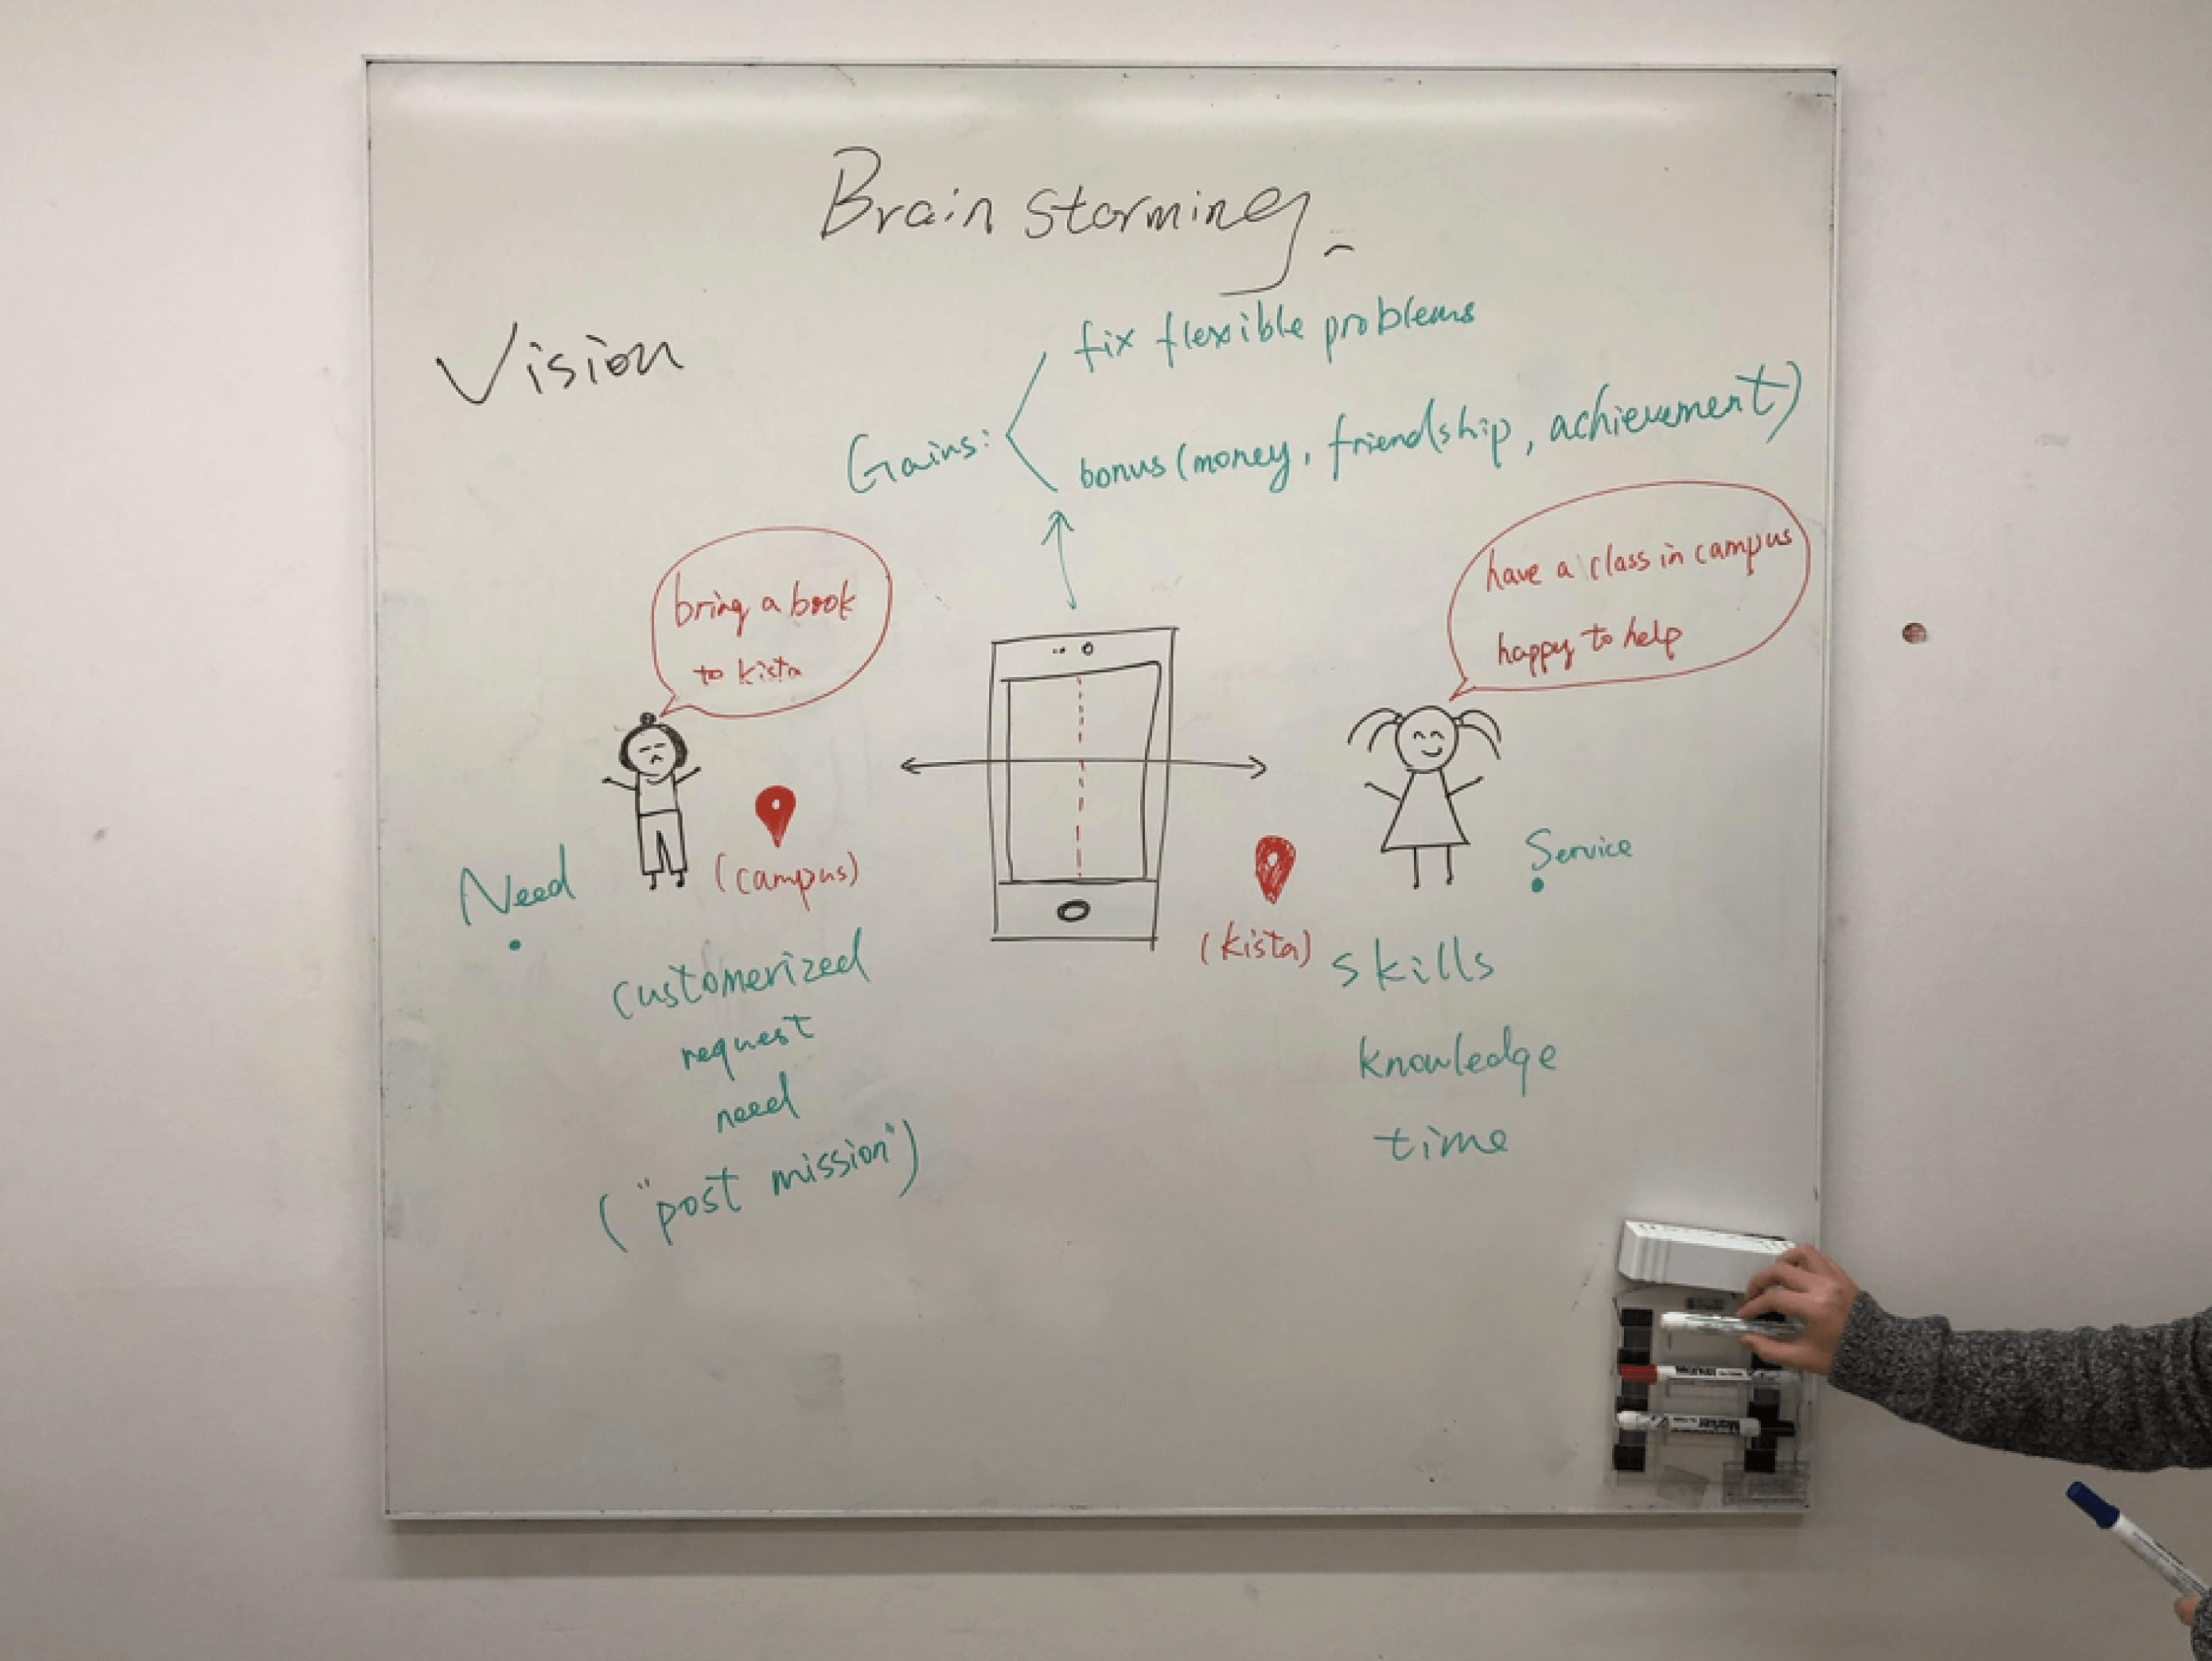 Brain storming
Vision
Gains:
fix flexible problems
bonus (money, friendship, achievement)
bring a book
to kista
have a class in campus
happy to help
Need
(campus)
customerized
request
need
("post mission")
(kista)
Service
skills
knowledge
time
Marker